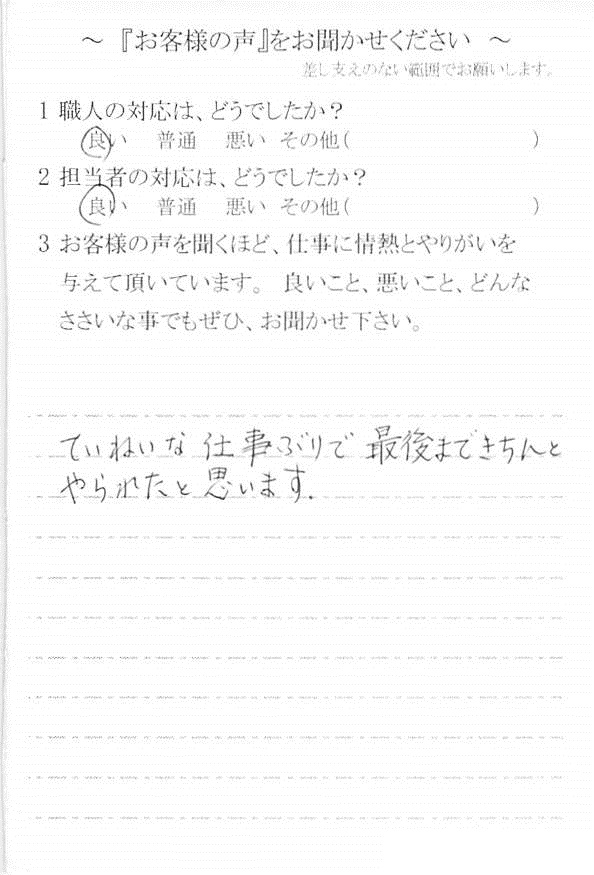 ～『お客様の声』をお聞かせください ～
差し支えのない範囲でお願いします。
1 職人の対応は、どうでしたか？
良い 普通 悪い その他( )
2 担当者の対応は、どうでしたか？
良い 普通 悪い その他( )
3 お客様の声を聞くほど、仕事に情熱とやりがいを
与えて頂いています。 良いこと、悪いこと、どんな
ささいな事でもぜひ、お聞かせ下さい。
ていねいな仕事ぶりで最後まできちんと
やられたと思います.